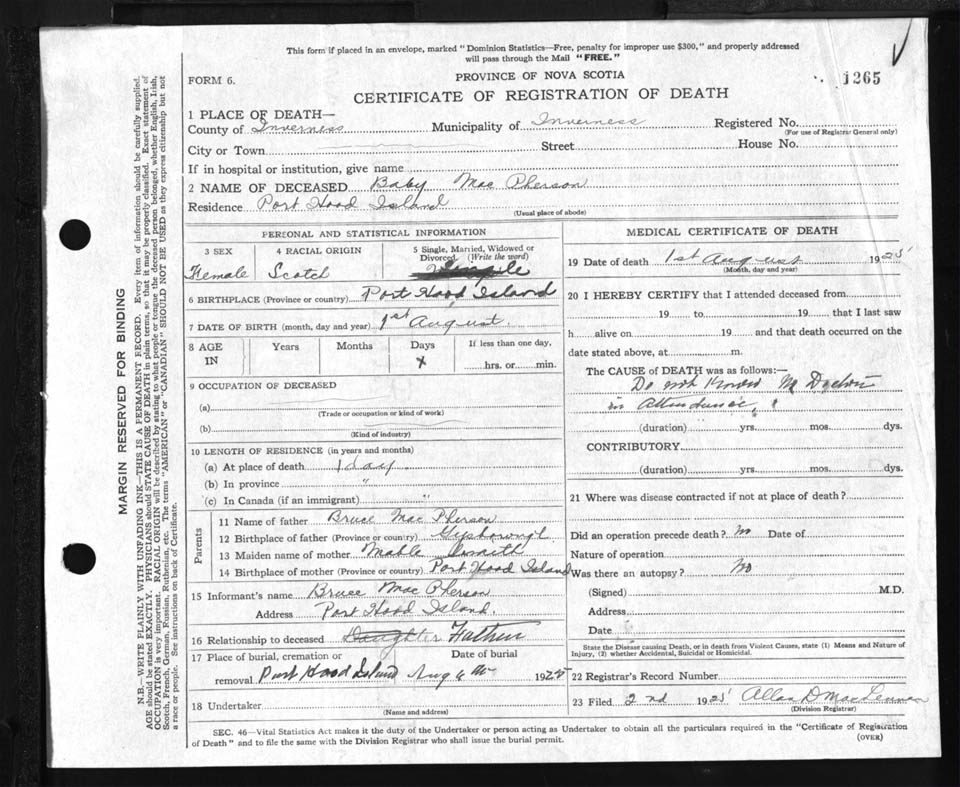 This form if placed in an envelope, marked "Dominion Statistics—Free, penalty for improper use $300," and properly addressed
will pass through the Mail "FREE."
FORM 6.
PROVINCE OF NOVA SCOTIA
1265
CERTIFICATE OF REGISTRATION OF DEATH
1 PLACE OF DEATH—
County of Inverness Municipality of Inverness Registered No.
(For use of Registrar General only)
City or Town Street House No.
If in hospital or institution, give name
2 NAME OF DECEASED Baby Mac Pherson
Residence Port Hood Island
(Usual place of abode)
PERSONAL AND STATISTICAL INFORMATION
3 SEX 4 RACIAL ORIGIN 5 Single, Married, Widowed or
Divorced (Write the word)
Female Scotch Single
6 BIRTHPLACE (Province or country) Port Hood Island
7 DATE OF BIRTH (month, day and year) 1st August.
8 AGE IN Years Months Days If less than one day,
x hrs. or min.
9 OCCUPATION OF DECEASED
(a)
(Trade or occupation or kind of work)
(b)
(Kind of industry)
10 LENGTH OF RESIDENCE (in years and months)
(a) At place of death 1 day
(b) In province "
(c) In Canada (if an immigrant) "
Parents
11 Name of father Bruce Mac Pherson
12 Birthplace of father (Province or country)
13 Maiden name of mother Mable Smith
14 Birthplace of mother (Province or country) Port Hood Island
15 Informant's name Bruce Mac Pherson
Address Port Hood Island.
16 Relationship to deceased Daughter Father
17 Place of burial, cremation or Date of burial
removal Port Hood Island Aug 1925
18 Undertaker
(Name and address)
MEDICAL CERTIFICATE OF DEATH
19 Date of death 1st August 1925
(Month, day and year)
20 I HEREBY CERTIFY that I attended deceased from
19 to 19 that I last saw
h alive on 19 and that death occurred on the
date stated above, at m.
The CAUSE of DEATH was as follows:—
Do not Know Doctor
in Attendance,
(duration) yrs. mos. dys.
CONTRIBUTORY
(duration) yrs. mos. dys.
21 Where was disease contracted if not at place of death?
Did an operation precede death? No Date of
Nature of operation
Was there an autopsy? No
(Signed) M.D.
Address
Date
State the Disease causing Death, or in death from Violent Causes, state (1) Means and Nature of
Injury, (2) whether Accidental, Suicidal or Homicidal.
22 Registrar's Record Number
23 Filed 2nd 1925 Allan D MacLennan
(Division Registrar)
SEC. 46—Vital Statistics Act makes it the duty of the Undertaker or person acting as Undertaker to obtain all the particulars required in the "Certificate of Registration
of Death" and to file the same with the Division Registrar who shall issue the burial permit.
(OVER)
MARGIN RESERVED FOR BINDING
N.B.—WRITE PLAINLY WITH UNFADING INK—THIS IS A PERMANENT RECORD. Every item of information should be carefully supplied.
AGE should be stated EXACTLY. PHYSICIANS should STATE CAUSE OF DEATH in plain terms, so that it may be properly classified. Exact statement of
OCCUPATION is very important. RACIAL ORIGIN will be described by stating to what people or tongue the deceased person belonged, whether English, Irish,
Scotch, French, German, Russian, Ruthenian, etc. The terms "AMERICAN" or "CANADIAN" SHOULD NOT BE USED as they express citizenship but not
a race or people. See instructions on back of Certificate.